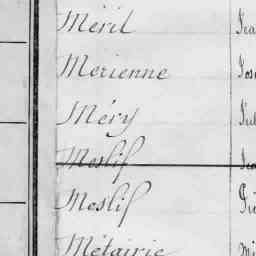 Méril
Merienne
Méry
Meslif
Meslif
Métairie